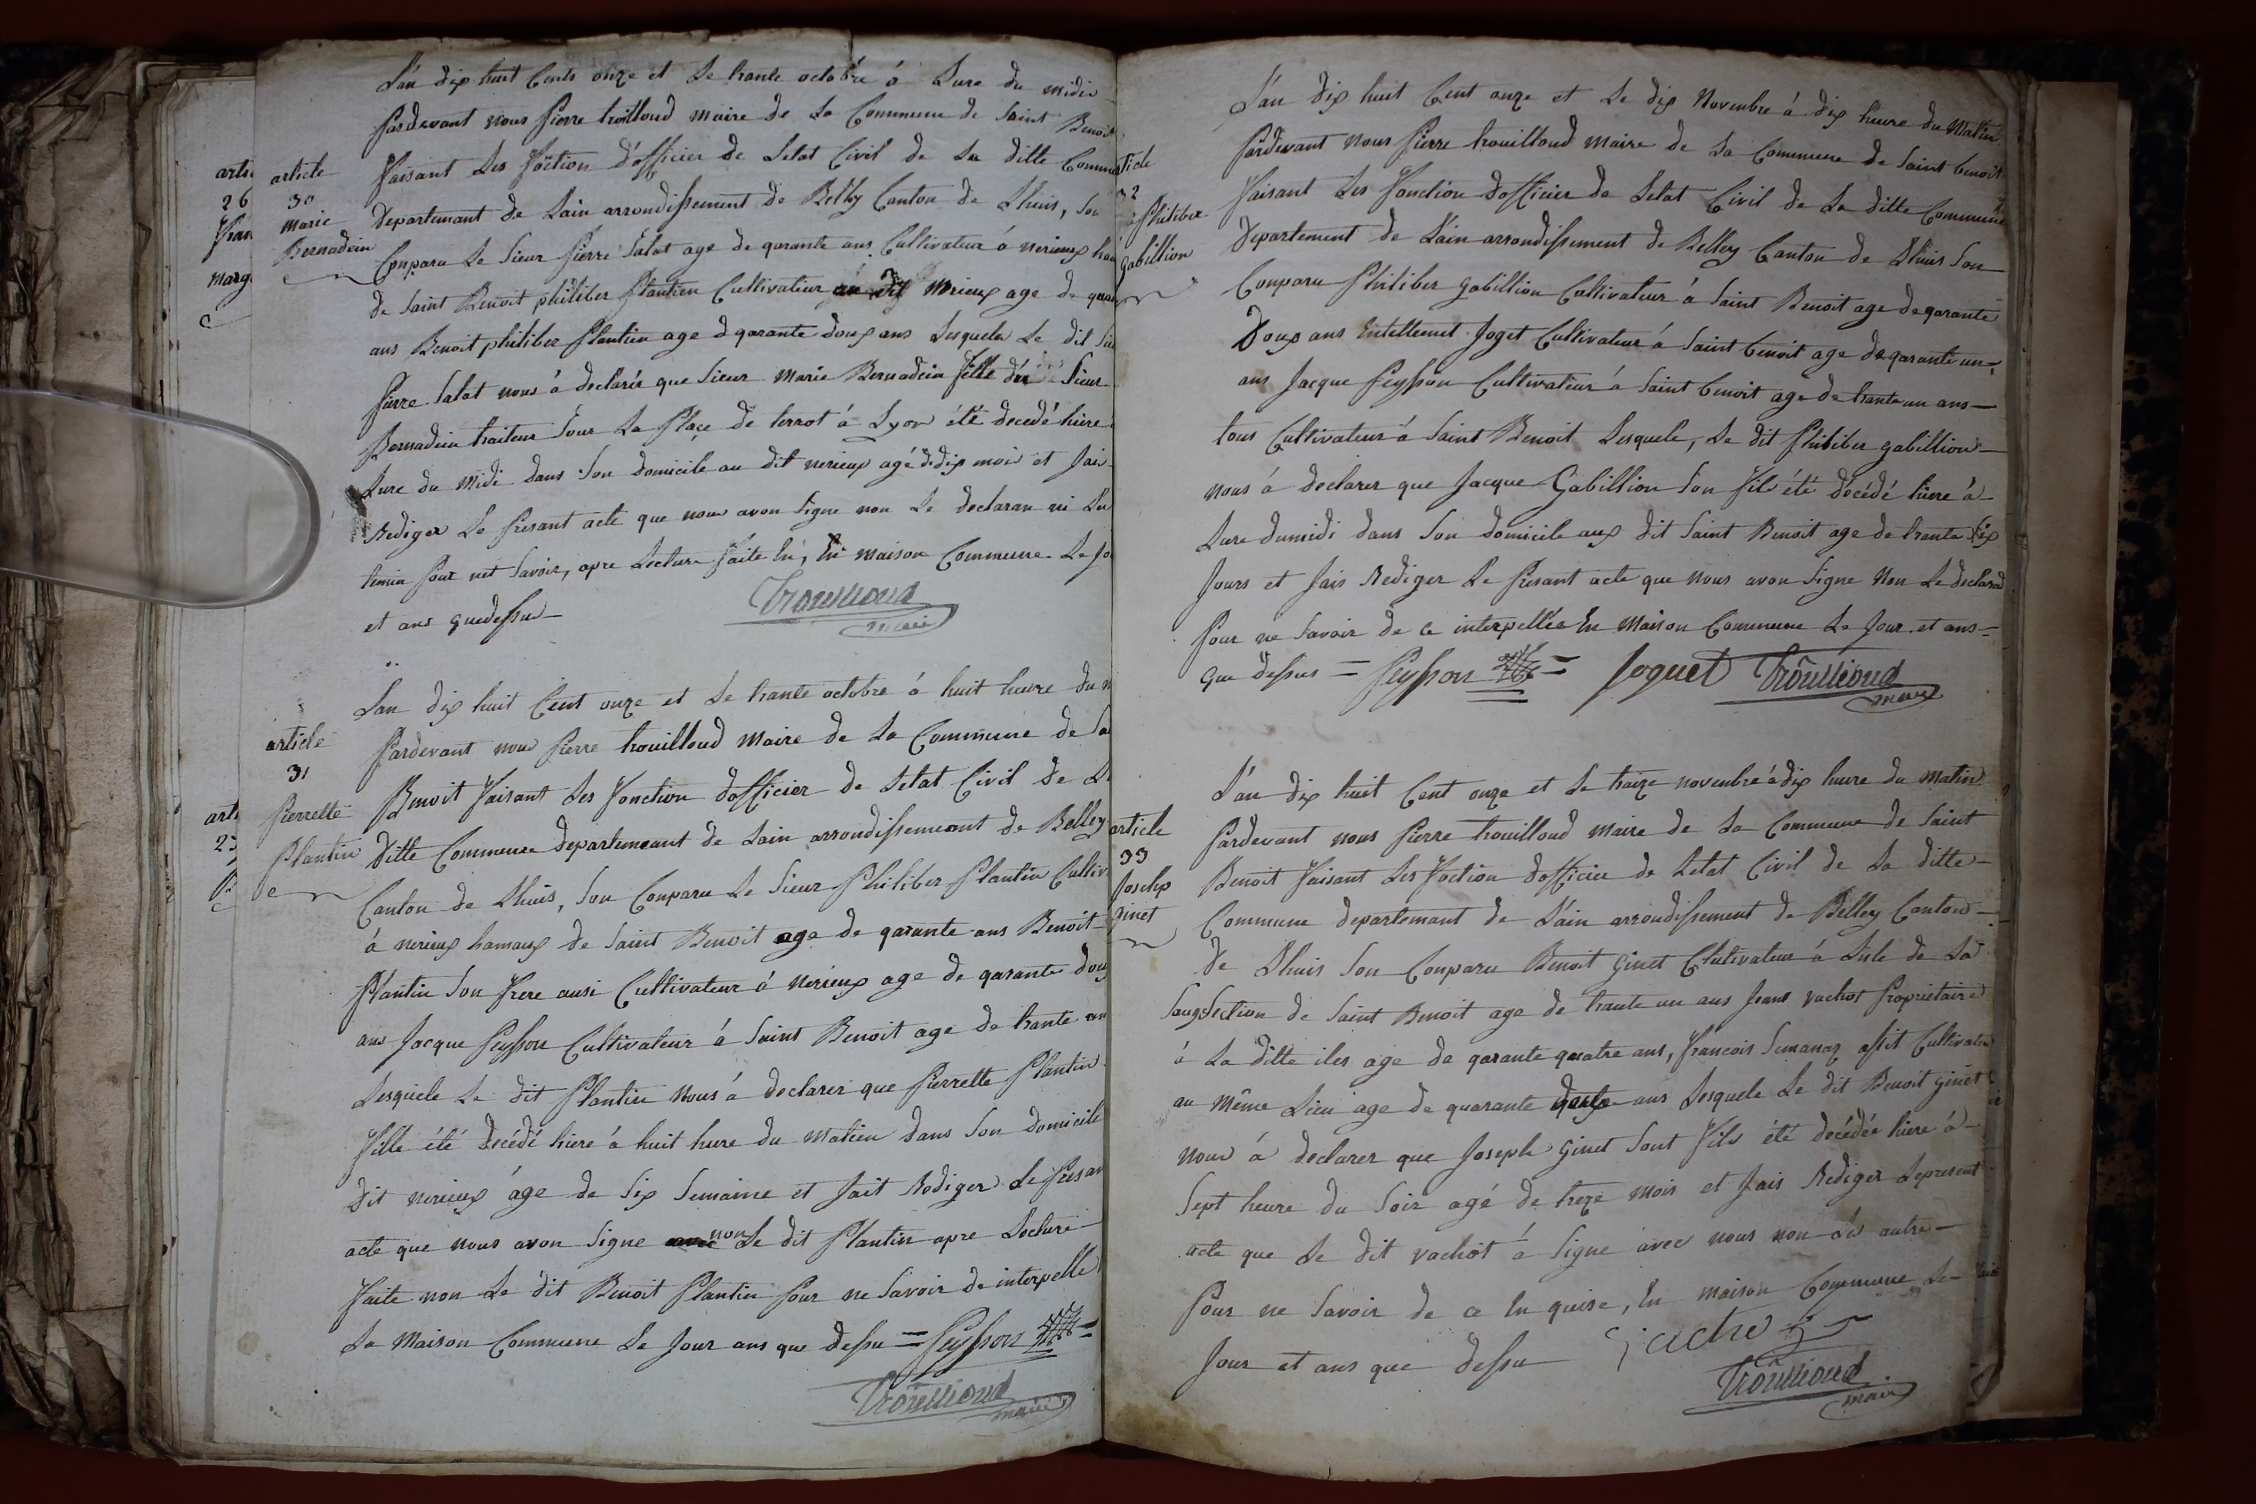 L'an dix huit Cents onze et Le trante octobre á Lure du midi
Pardevant nous Pierre trouilloud maire de La Commune de Saint Benoit
faisant Les foction d'officier de Letat Civil de La ditte Commu
article
30
marie
Bernadein
Departemant de Lain arrondissement de Belley Canton de Lhuis, Son
Conparu Le Sieur Pierre Salat age de qarante ans Cultivateur á nerieux
de Saint Benoit philiber Plantien Cultivateur au dit nerieux age de
ans Benoit philiber Plantien age d qarante doux ans Lesquels Le dit
Pierre Salat nous á declarér que Sieur Marie Bernadein fille Sieur
Bernadein traiteur Sour La Place de terrot á Lyon été decedé hiere
Lure du Midi dans Son domicile au dit nerieux agé de dix moi et fai
Rediger Le Presant acte que nous avon Signe non Le declaran ni Les
temin Pour net Savoir, apre Lecture faite En maison Commune Le Jo
et ans quedessu
Trouilloud
maire
Lan dix huit Cent onze et Le trante octobre á huit heure du
article
31
Pierrette
Plantin
Pardevant nous Pierre trouilloud maire de La Commune de
Benoit faisant Les fonction dofficier de Letat Civil de
ditte Commune departemeant de Lain arrondissemeant de Belley
Canton de Lhuis, Son Conparu Le Sieur Philiber Plantin
á nerieux hamaux de Saint Benoit age de qarante ans Benoit
Plantin Son frere ausi Cultivateur á nerieux age de qarante doux
ans Jacque Peysson Cultivateur á Saint Benoit age de trante
Lesquele Le dit Plantin nous á declarer que Pierrette Plantin
fille été decédé hiere á huit hure du Matien dans Son domicile
dit nerieux áge de Six Semaine et fait Rediger Le Presan
acte que nous avon Signe non Le dit Plantin apre Lecture
faite non Le dit Benoit Plantin Pour ne Savoir de interpelle
La Maison Commune Le Jour ans que dessu = Peysson =
Trouilloud
maire
L'an dix huit Cent onze et Le dix Novembre á dix heure du Matin
Pardevant nous Pierre trouilloud maire de La Commune de Saint benoit
32
Philiber
gabillion
faisant Les fonction dofficier de Letat Civil de La ditte Commune
Departement de L'ain arrondissement de Belley Canton de Lhuis Son
Conparu Philiber gabillion Cultivateur á Saint Benoit age de qarante
Doux ans Entellemet Joget Cultivateur á Saint benoit age de qarante un
ans Jacque Peysson Cultivateur á Saint benoit age de trante un ans
tous Cultivateur á Saint Benoit Lesquele, Le dit Philiber gabillion
nous á declarer que Jacque Gabillion Son fils été décédé hiere á
Lure dumidi dans Son domicile aux dit Saint Benoit age de trante Six
Jours et fais Rediger Le Presant acte que nous avon Signe Non Le declarad
Pour ne Savoir de ce interpellée En Maison Commune Le Jour et ans =
que dessus = Peysson = Joguet Trouilloud
maire
L'an dix huit Cent onze et Le traize novembre á dix hure du Matin
article
33
Joseph
ginet
Pardevant nous Pierre trouilloud maire de La Commune de Saint
Benoit faisant Les foction dofficier de Letat Civil de La ditte
Commune departemant de L'ain arrondissement de Belley Canton
de Lhuis Son Conparu Benoit ginet Clutivateur á Lile de La
Section de Saint Benoit age de trante un ans Jeans vachot Propriétaire
á La ditte iles age de qarante quatre ans, francois Cultivateu
au même Lieu age de quarante ans Lesquele Le dit Benoit ginet
nous á declarer que Joseph ginet Sont fils été decédée hiere á
Sept heure du Soir agé de treze mois et fais Rediger Lepresent
acte que Le dit vachot á Signe avec nous non Les autre
Pour ne Savoir de ce En quise, En maison Commune Le
Jour et ans que dessu
Trouilloud
maire